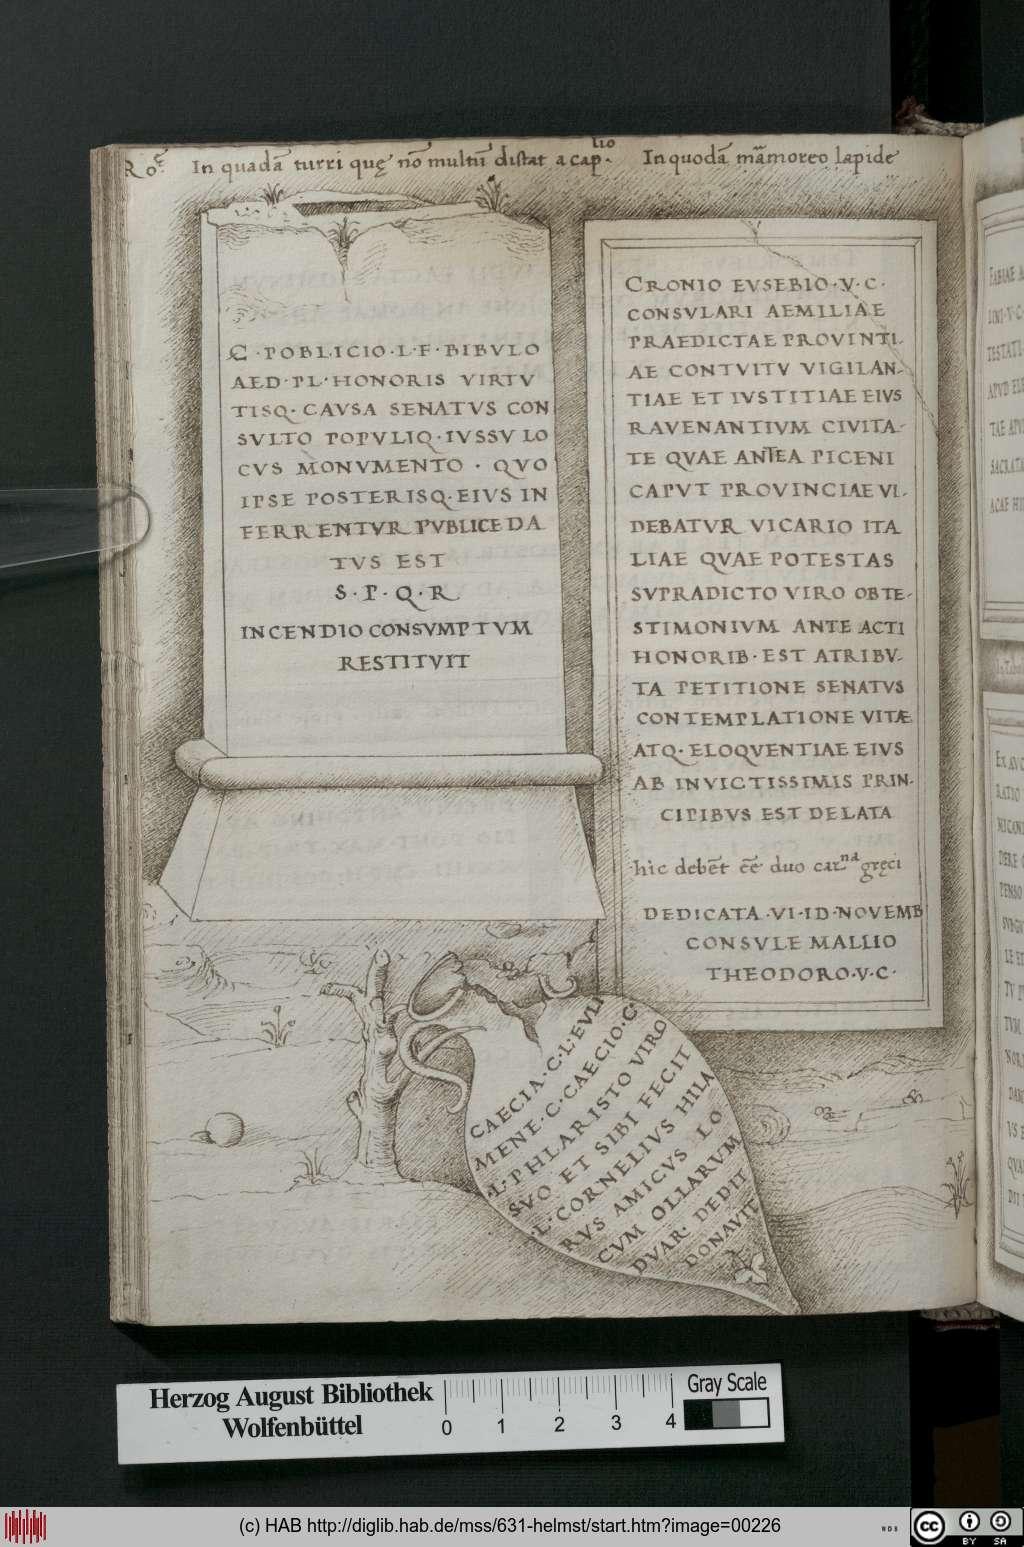 Roę In quadā turri quę nō multū distat a caplio. In quodā māmoreo lapide
C · POBLICIO · L · F · BIBVLO
AED · PL · HONORIS VIRTV
TISQ · CAVSA SENATVS CON
SVLTO POPVLIQ · IVSSV LO
CVS MONVMENTO · QVO
IPSE POSTERISQ · EIVS IN
FERRENTVR PVBLICE DA
TVS EST
S · P · Q · R
INCENDIO CONSVMPTVM
RESTITVIT
CRONIO EVSEBIO · V · C ·
CONSVLARI AEMILIAE
PRAEDICTAE PROVINTI-
AE CONTVITV VIGILAN-
TIAE ET IVSTITIAE EIVS
RAVENANTIVM CIVITA-
TE QVAE ANTEA PICENI
CAPVT PROVINCIAE VI-
DEBATVR VICARIO ITA
LIAE QVAE POTESTAS
SVPRADICTO VIRO OB TE-
STIMONIVM ANTE ACTI
HONORIB · EST ATRIBV-
TA PETITIONE SENATVS
CONTEMPLATIONE VITÆ
ATQ · ELOQVENTIAE EIVS
AB INVICTISSIMIS PRIN-
CIPIBVS EST DELATA
hic debēt eē duo carna gręci
DEDICATA · VI · ID · NOVEMB
CONSVLE MALLIO
THEODORO · V · C ·
CAECIA · C · L · EVLI
MENE · C · CAECIO · C ·
L · PHLARISTO VIRO
SVO ET SIBI FECIT
L · CORNELIVS HILA
RVS AMICVS LO
CVM OLLARVM
DVAR · DEDIT
DONAVIT
FABIAE
LINI · V · C
TESTATI
APVD
TAE APV
SACRATA
ACAE HI
In Tabu
EX AVC
RATIO
MICAN
DERE
PENSO
SVBGV
LE ET
TVM
NOR
DAM
VS E
QVA
DIT
Herzog August Bibliothek
Wolfenbüttel
0 1 2 3 4
Gray Scale
(c) HAB http://diglib.hab.de/mss/631-helmst/start.htm?image=00226
WDB
cc BY SA